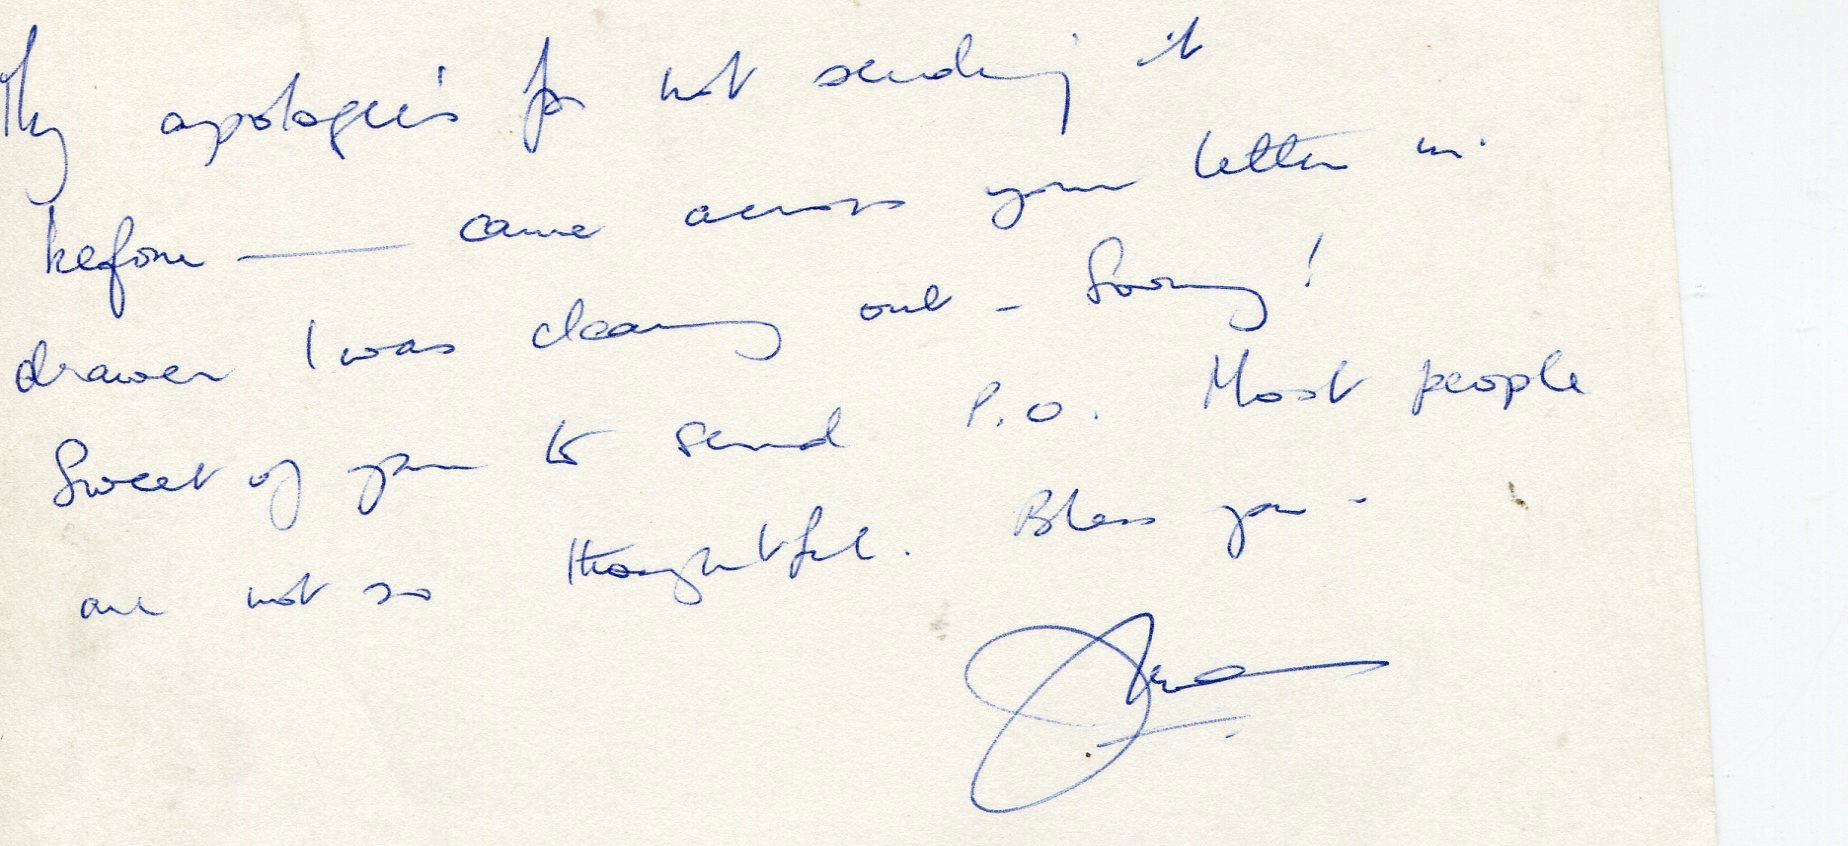 My apologies for not sending it
before — came across your letter in
drawer I was cleaning out - Sorry!
Sweet of you to send P.O. Most people
are not so thoughtful. Bless you -